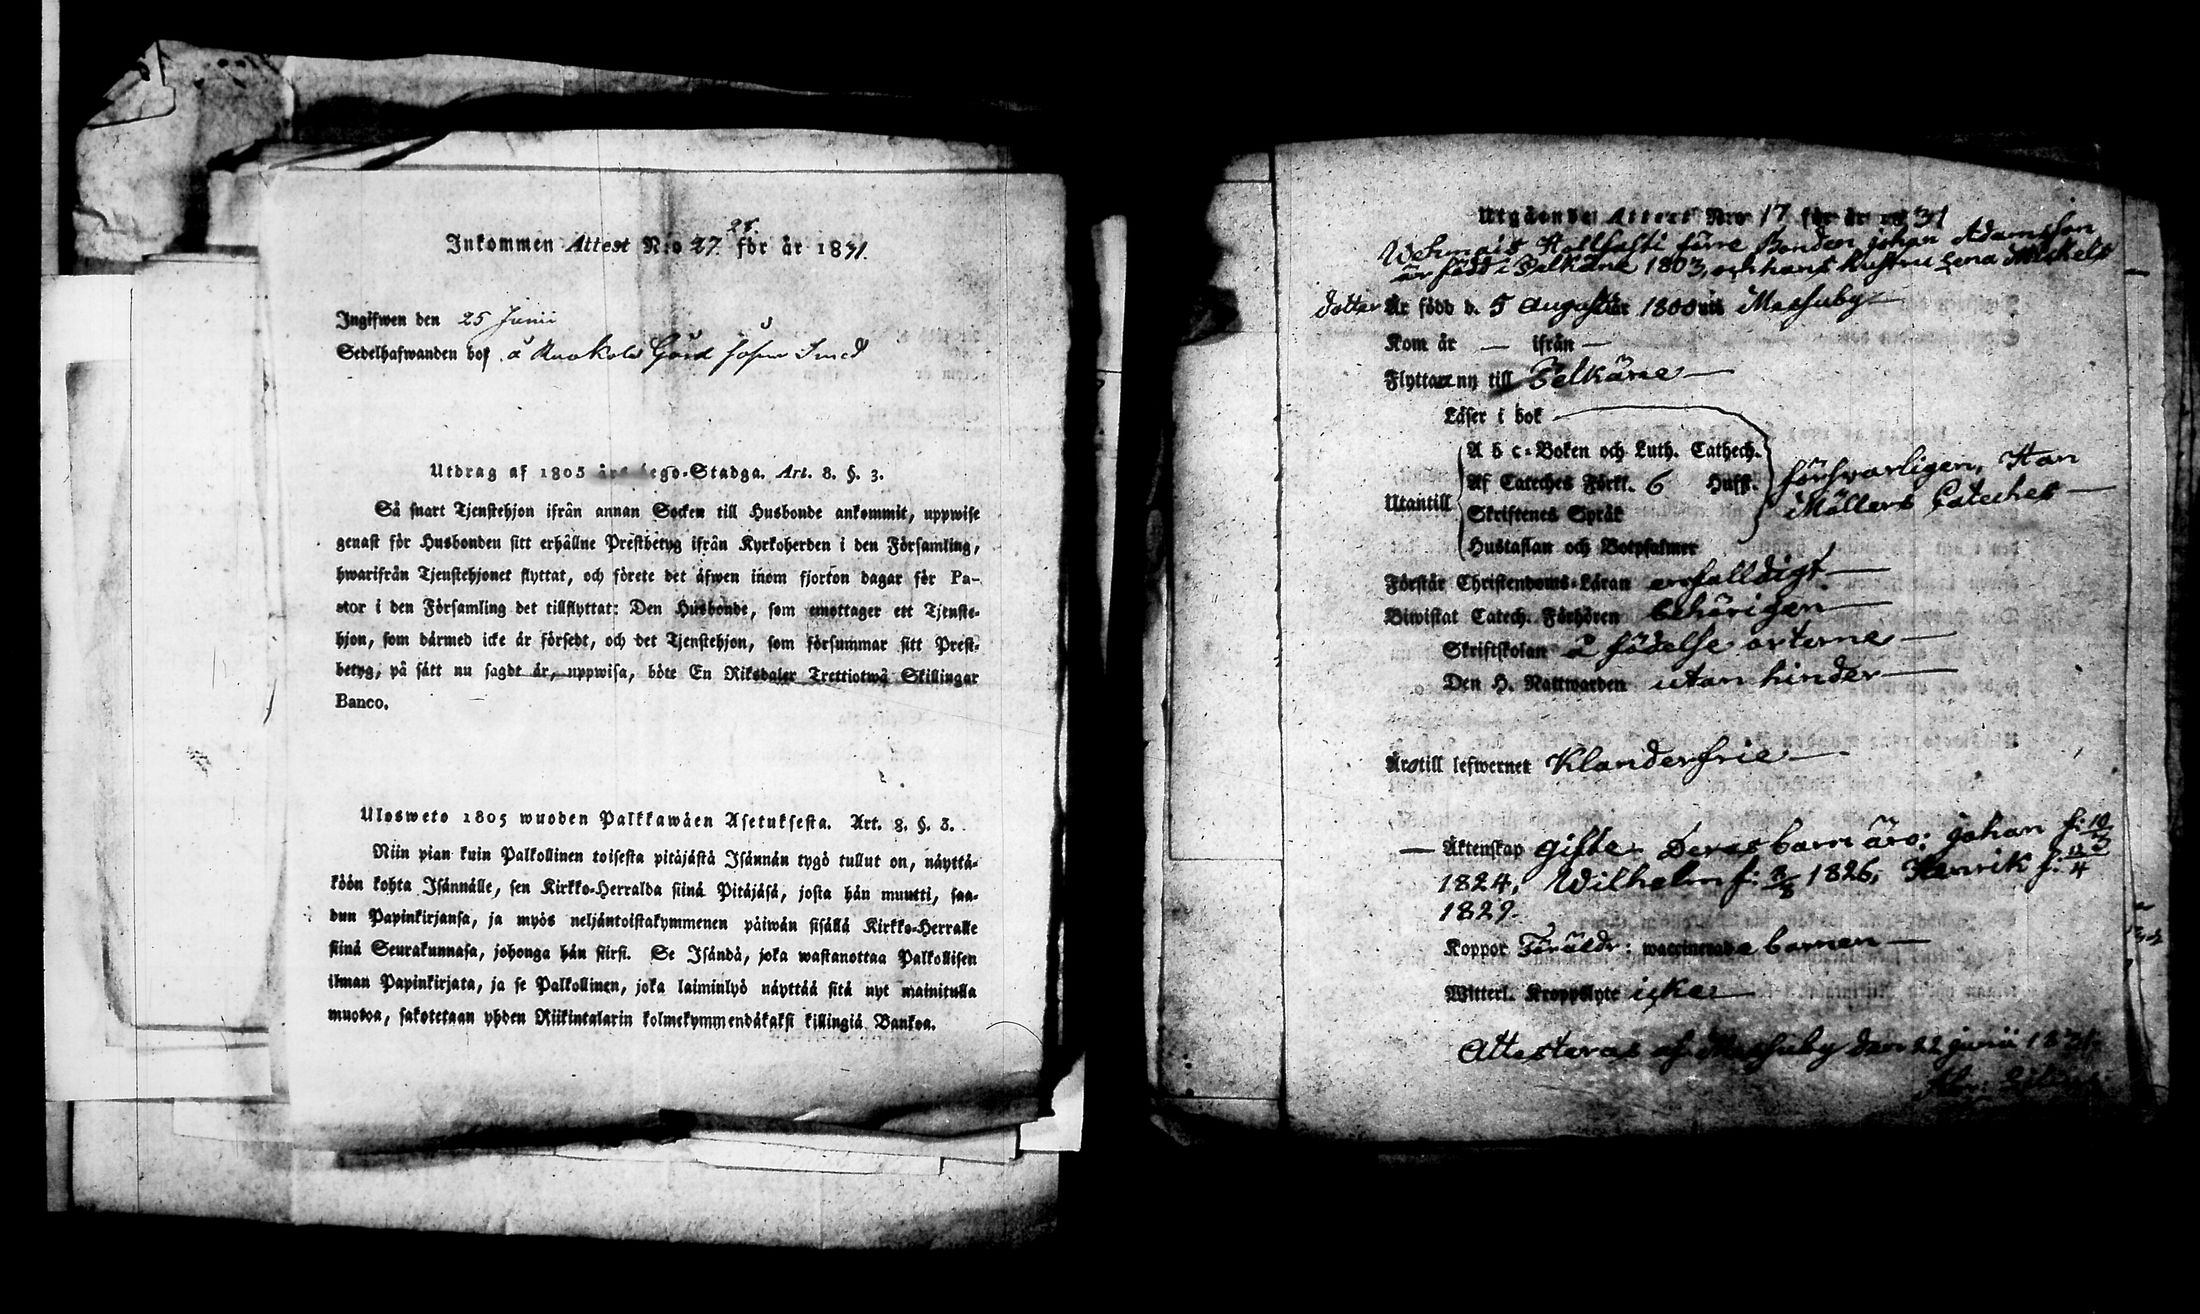 Inkommen Attest N:o 27. för år 1831.
27.
Ingifwen den 25 Junii
Sedelhafwanden bor å Gård som Smed
Utdrag af 1805 års Lego-Stadga. Art. 8. §. 3.
Så snart Tjenstehjon ifrån annan Socken till Husbonde ankommit, uppwise
genast för Husbonden sitt erhållne Prestbetyg ifrån Kyrkoherden i den Församling,
hwarifrån Tjenstehjonet flyttat, och förete det äfwen inom fjorton dagar för Pa-
stor i den Församling det tillflyttat: Den Husbonde, som emottager ett Tjenste-
hjon, som därmed icke är försedt, och det Tjenstehjon, som försummar sitt Prest-
betyg, på sätt nu sagdt är, uppwisa, böte En Riksdaler Trettiotwå Skillingar
Banco.
Ulosweto 1805 wuoden Palkkawäen Asetuksesta. Art. 8. §. 3.
Niin pian kuin Palkollinen toisesta pitäjästä Isännän tygö tullut on, näyttä-
köön kohta Isännälle, sen Kirkko-Herralda siinä Pitäjäsä, josta hän muutti, saa-
dun Papinkirjansa, ja myös neljäntoistakymmenen päiwän sisällä Kirkko-Herralle
siinä Seurakunnasa, johonga hän siirsi. Se Isändä, joka wastanottaa Palkollisen
ilman Papinkirjata, ja se Palkollinen, joka laiminlyö näyttää sitä nyt mainitulla
muotoa, sakotetaan yhden Riikintalarin kolmekymmendäkaksi killingiä Bankoa.
Utgående Attest N:ro 17 för år 1831
Wehmais Hollfasti förre Bonden Johan Adamsson
är född i Pelkäne 1803, och hans Hustru Lena Michels
dotter Är född d. 5 Augusti år 1800 uti Messuby
Kom år — ifrån —
Flytta nu till Pelkäne
Läser i bok
Utantill
A b c-Boken och Luth. Cathech.
Af Cateches Förkl. 6 Hufst.
Skriftenes Språk
Hustaflan och Botpsalmer
försvarligen, Han
Möllers Cateches
Förstår Christendoms-Läran enfalldigt
Biwistat Catech. Förhören behörigen
Skriftskolan å födelse orterne
Den H. Nattwarden utan hinder
Äro till lefwernet Klanderfrie
Äktenskap gifte. Deras barn äro: Johan f: 10/3
1824, Wilhelm f: 1826, Henrik f:
1829.
Koppor Föräldr: waccinerade barnen
Witterl. Kroppslyte icke
Attesteras af Messuby den 22 Junii 1831.